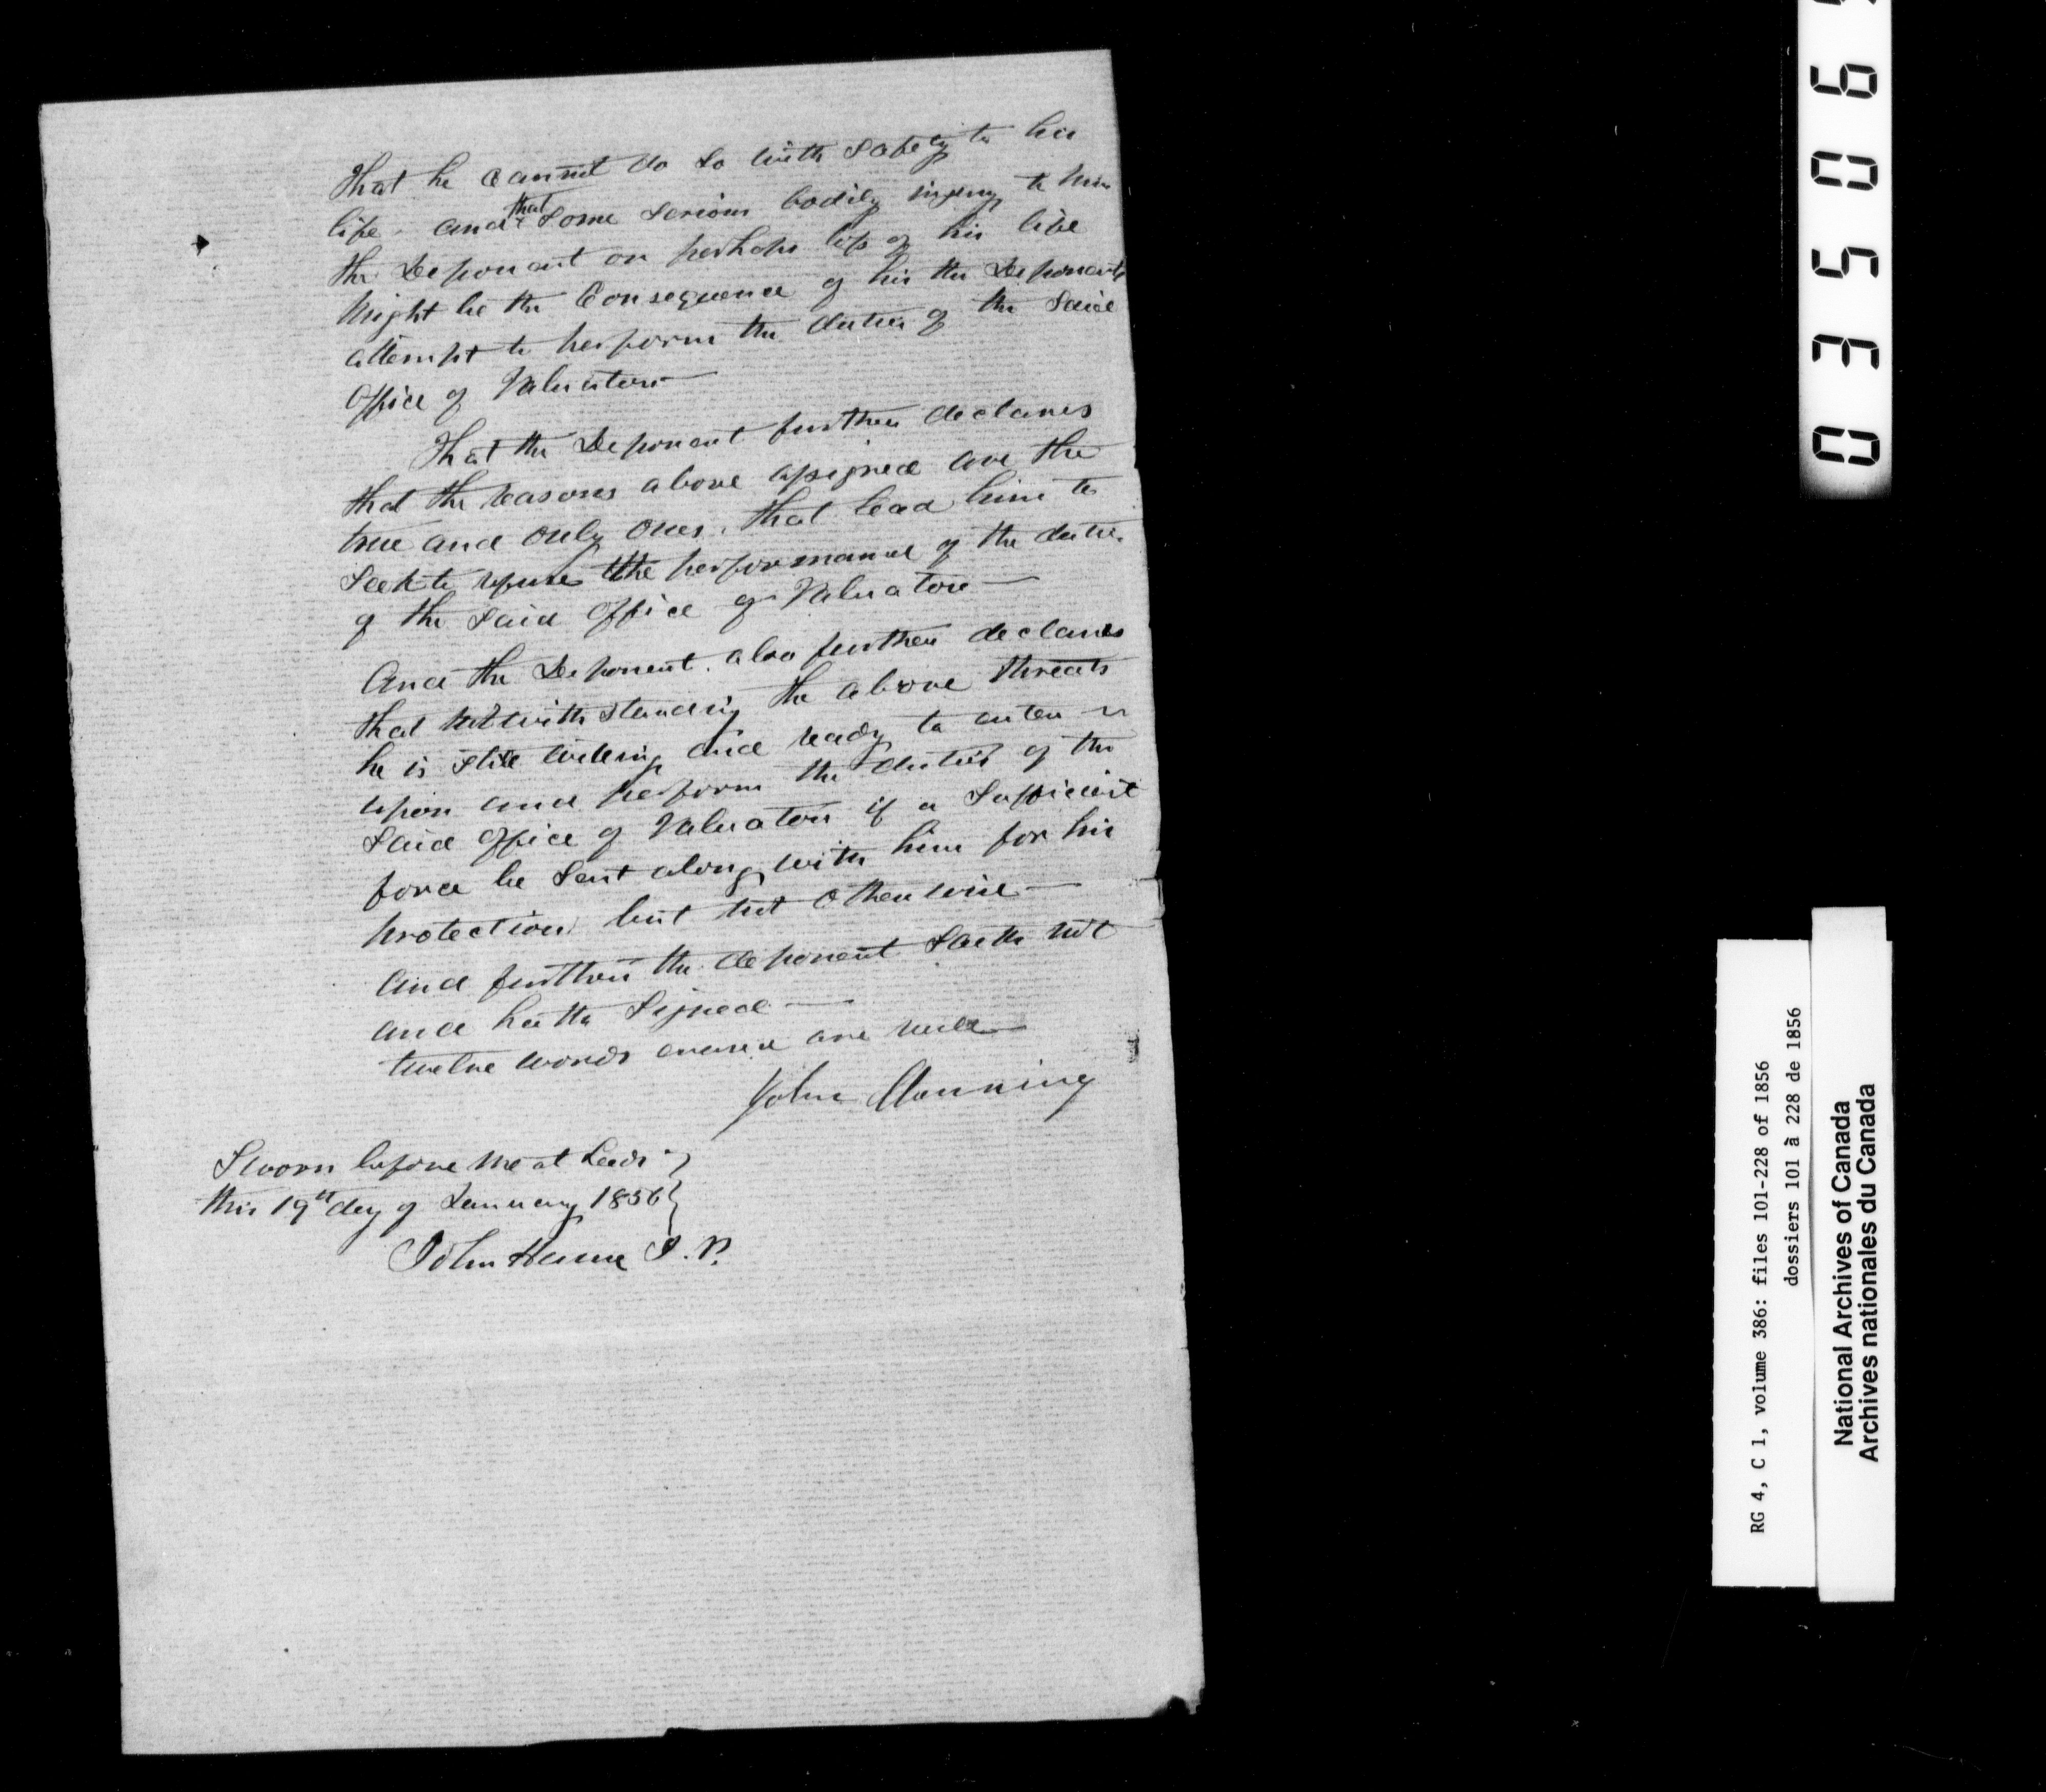 That he cannot do so with safety to his
life and that some serious bodily injury to him
the Deponent or perhaps loss of his life
might be the Consequence of his the Deponents
attempt to perform the duties of the said
Office of Valuators
That the Deponent further declares
that the reasons above assigned are the
true and only ones. that lead him to
seek to refuse the performance of the duties
of the said Office of Valuators
And the Deponent also further declares
that notwithstanding the above threats
he is still willing and ready to enter
upon and perform the duties of the
said Office of Valuators if a sufficient
force be sent along with him for his
protection but not otherwise
and further the deponent saith not
and hath signed
twelve words erased are null
John Manning
Sworn before me at Leeds
this 19th day of January 1856
John Hume J.P.
0 3 5 0 6
RG 4, C 1, volume 386: files 101-228 of 1856
dossiers 101 à 228 de 1856
National Archives of Canada
Archives nationales du Canada